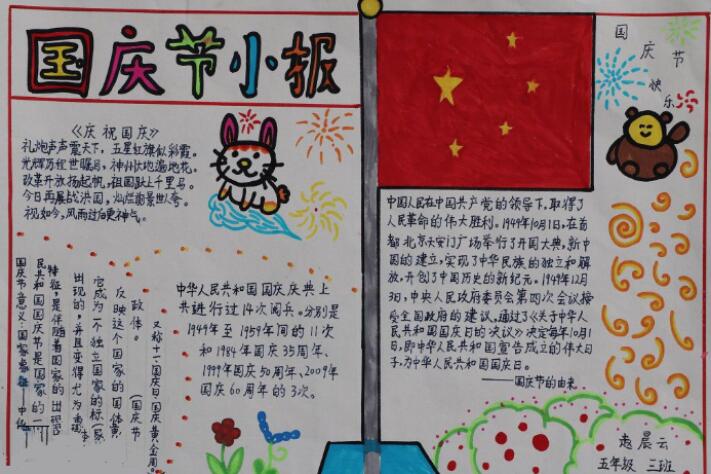 国庆节小报
《庆祝国庆》
礼炮声声震天下，五星红旗似彩霞。
光辉历程世瞩目，神州大地遍地花。
改革开放扬起帆，祖国跃上千里马。
今日再展战洪图，灿烂前景世人夸。
视如今，风雨过后更神气。
中华人民共和国国庆庆典上
共进行过14次阅兵。分别是
1949年至1959年间的11次
和1984年国庆35周年、
1999年国庆50周年、2009年
国庆60周年的3次。
又称十一、国庆日、国庆黄金周。
(国庆节
政体。
反映这个国家的国体
宫成为一个独立国家的标(家
出现的，并且变得尤为重要
特征，是伴随着国家的出
民共和国国庆节是国家的一
国庆节意义：国家象征
国庆节
快乐
中国人民在中国共产党的领导下，取得了
人民革命的伟大胜利。1949年10月1日，在首
都北京天安门广场举行了开国大典，新中
国的建立，实现了中华民族的独立和解
放，开创了中国历史的新纪元。1949年12
月3日，中央人民政府委员会第四次会议接
受全国政府的建议，通过了《关于中华人
民共和国国庆日的决议》决定每年10月1
日，即中华人民共和国宣告成立的伟大日
子，为中华人民共和国国庆日。
——国庆节的由来
赵晨云
五年级 三班